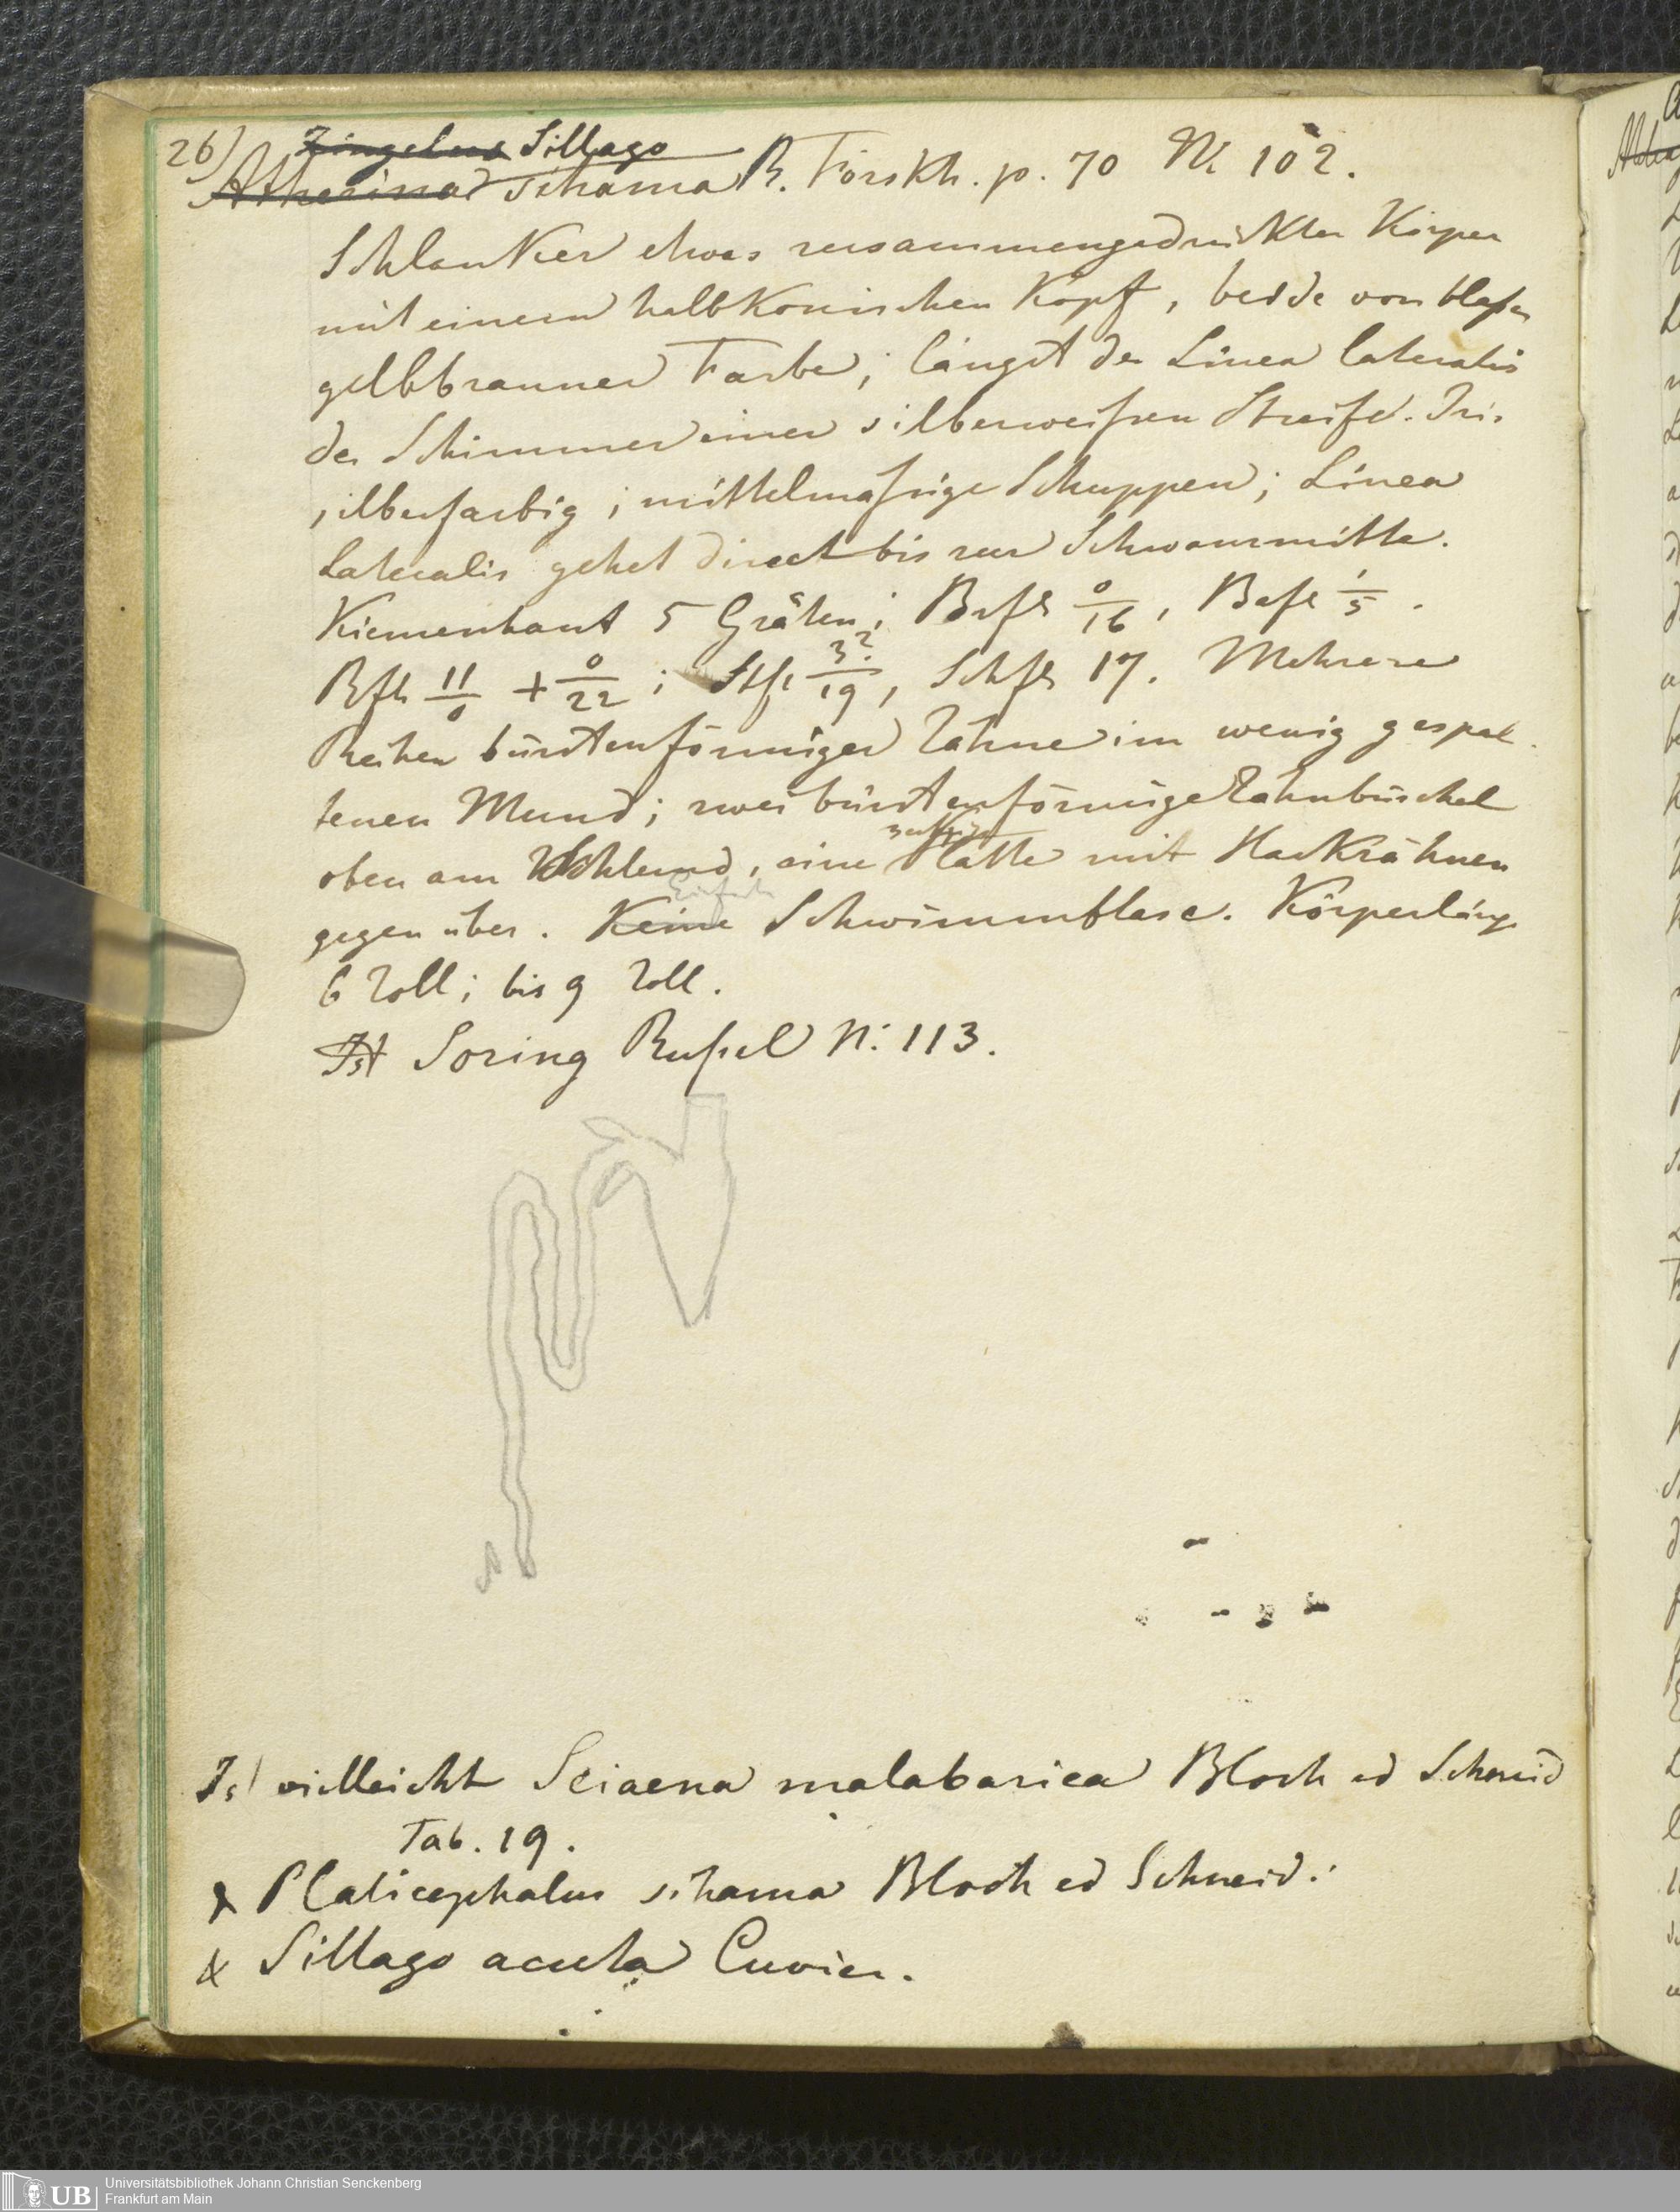 26)
Zingelus Sillago
Atherina sihama R. Forskh. p. 70 N: 102.
Schlanker etwas zusammengedruckter Körper
mit einem halbkonischen Kopf, beide von blaßer
gelbbrauner Farbe; längst der Linea lateralis
der Schimmer einer silberweißen Streife. Iris
silberfarbig; mittelmaßige Schuppen; Linea
Lateralis gehet direct bis zur Schwanzmitte.
Kiemenhaut 5 Gräten; Brfl 0/16, Bafl 1/5.
Rfl 11/0 + 0/22; Stfl 3?/19, Schfl 17. Mehrere
Reihen bürstenförmiger Zähne im wenig gespal-
tenen Mund; zwei bürstenförmige Zahnbüschel
oben am Schlund, eine Platte mit Hackzähnen
gegen über. Keine Schwimmblase. Körperlänge
Einfache
6 Zoll; bis 9 Zoll.
Ist Soring Rußel N: 113.
Ist vielleicht Sciaena malabarica Bloch ed Schneid
Tab. 19.
& Platicephalus sihama Bloch ed Schneid:
& Sillago acuta Cuvier.
UB Universitätsbibliothek Johann Christian Senckenberg
Frankfurt am Main